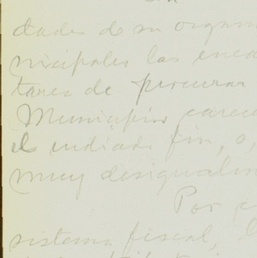 dades de su organi
nicipales las enca
tares de procurar
Municipios carec
el indicado fin, o,
muy desigualm
Por c
sistema fiscal, l